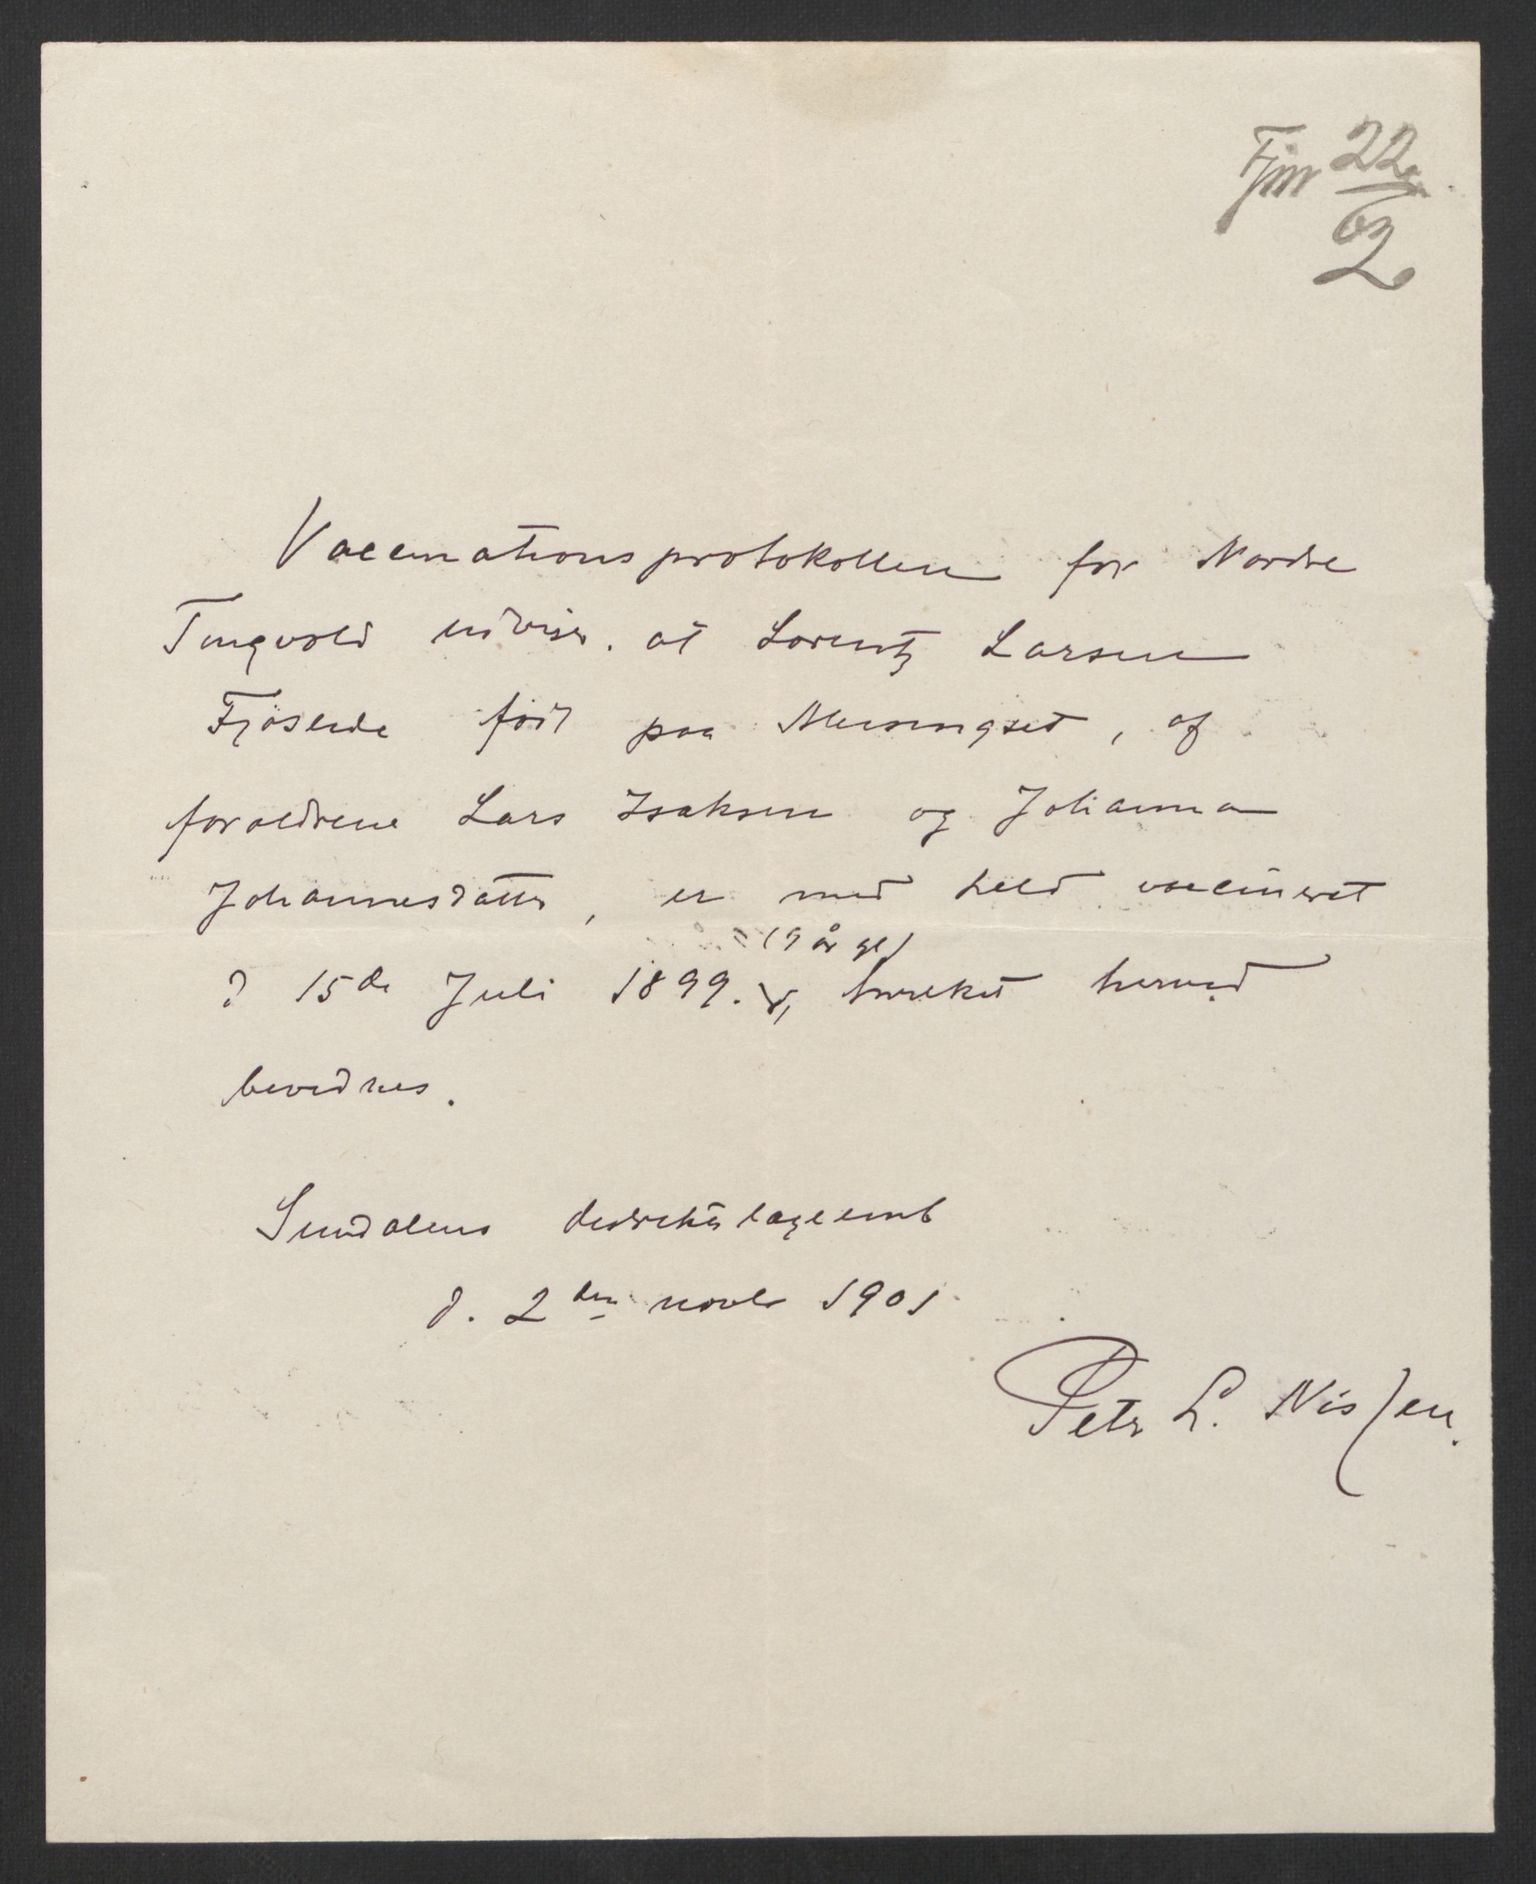 22
2
Vaccinationsprotokollen for Nordre
Tingvold udviser. at Lorentz Larsen
Fjøseide föd paa Meisingset, af
forældrene Lars Isaksen og Johanna
Johannesdatter, er med held vaccineret
(9 år gl)
d 15de Juli 1899. v, hvilket herved
bevidnes.
Sundalens distriktslægeemb
d. 2den novbr 1901
Petr L. Nissen.